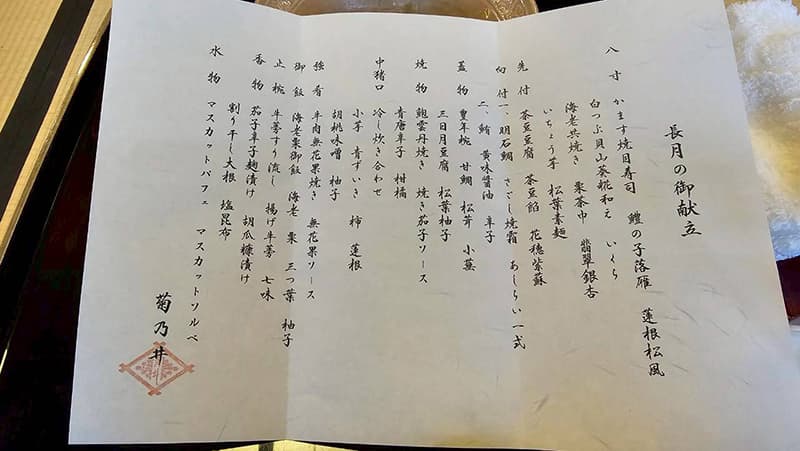 長月の御献立
八寸 かます焼目寿司 鱧の子落雁 蓮根松風
白つぶ貝山葵糀和え いくら
海老共焼き 栗茶巾 翡翠銀杏
いちょう芋 松葉素麺
先付 茶豆豆腐 茶豆餡 花穂紫蘇
向付 一、明石鯛 さごし焼霜 あしらい一式
二、鮪 黄味醤油 辛子
蓋物 豊年椀 甘鯛 松茸 小蕪
三日月豆腐 松葉柚子
焼物 鮑雲丹焼き 焼き茄子ソース
青唐辛子 柑橘
中猪口 冷し炊き合わせ
小芋 青ずいき 柿 蓮根
胡桃味噌 柚子
強肴 牛肉無花果焼き 無花果ソース
御飯 海老栗御飯 海老 栗 三つ葉 柚子
止椀 牛蒡すり流し 揚げ牛蒡 七味
香物 茄子辛子麹漬け 胡瓜糠漬け
割り干し大根 塩昆布
水物 マスカットパフェ マスカットソルベ
菊乃井